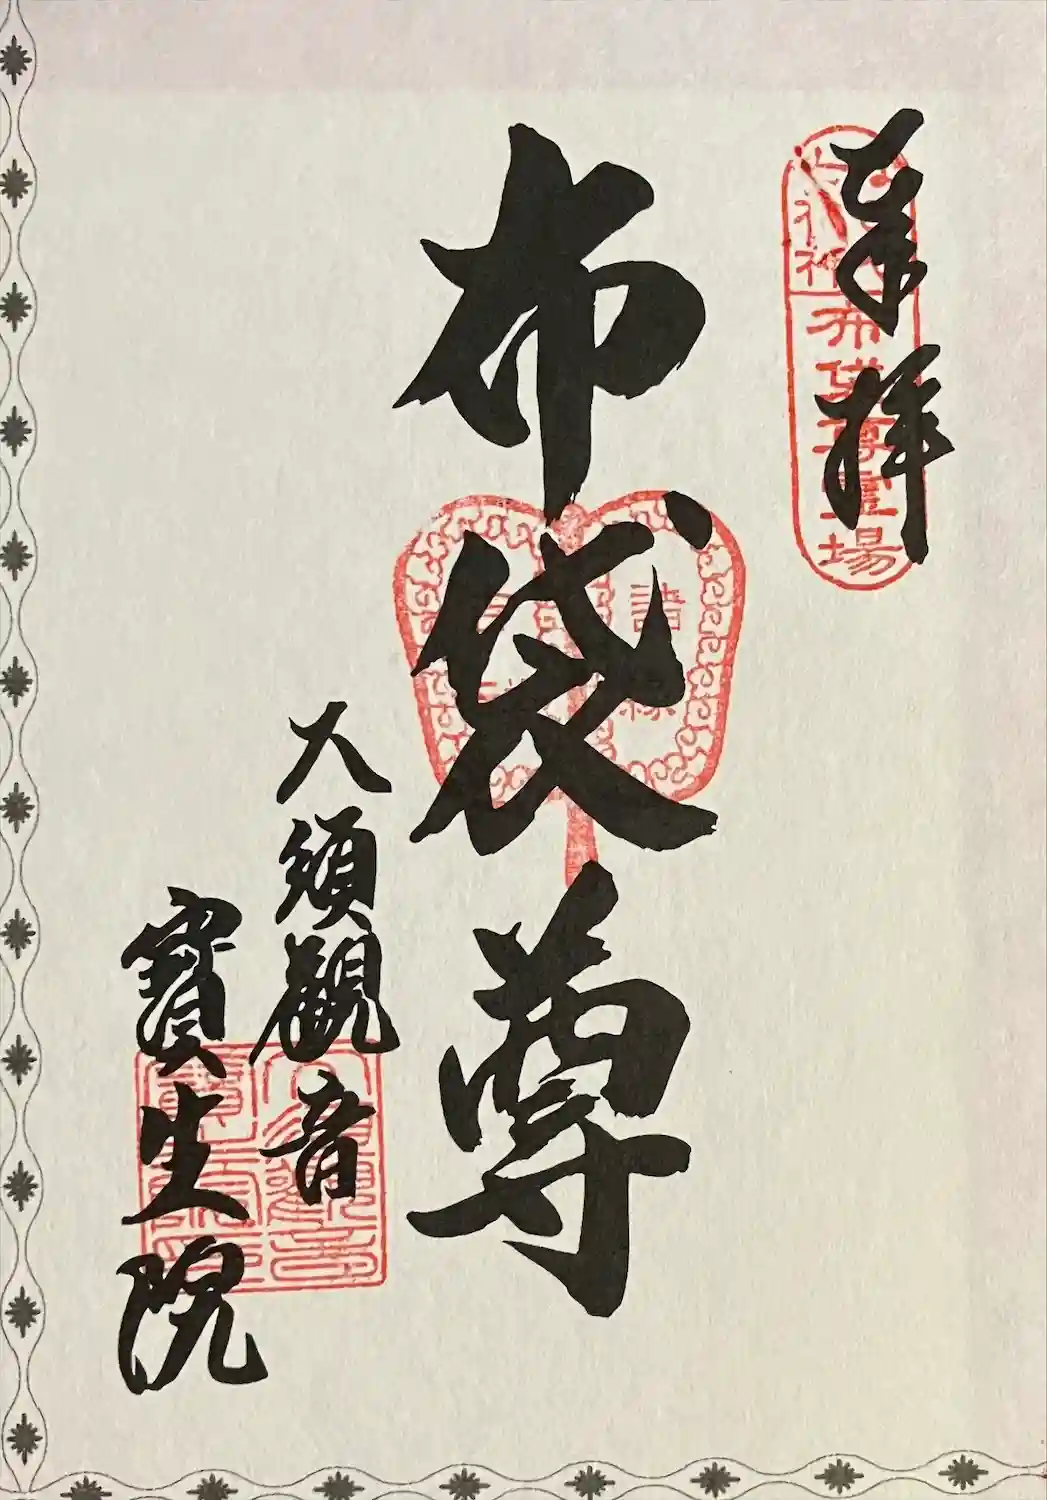 奉拝
布袋尊
大須観音
寳生院
布袋尊霊場